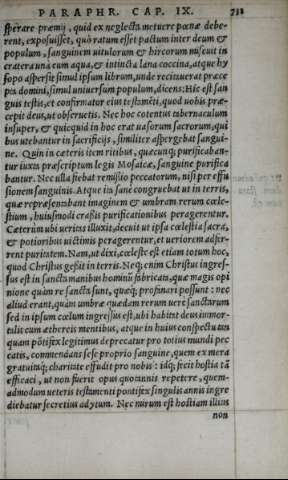 PARAPHR. CAP. IX. 731
sperare præmij, quid ex neglecta metuere pœnæ debe-
rent, exposuisset, quò ratum esset pactum inter deum &
populum, sanguinem uitulorum & hircorum miscuit in
cratera unà cum aqua, & intincta lana coccina, atque hy
sopo aspersit simul ipsum librum, unde recitauerat præce
pta domini, simul uniuersum populum, dicens: Hic est san
guis testis, et confirmator eius testamēti, quod uobis præ-
cepit deus, ut obseruetis. Nec hoc cotentus tabernaculum
insuper, & quicquid in hoc erat uasorum sacrorum, qui
bus utebantur in sacrificijs, similiter aspergebat sangui-
ne. Quin in cæteris item ritibus, quæcunq; purificaban-
tur iuxta præscriptum legis Mosaicæ, sanguine purifica
bantur. Nec ulla fiebat remissio peccatorum, nisi per effu
sionem sanguinis. Atque ita sanè congruebat ut in terris,
quæ repræsentabant imaginem & umbram rerum cœle-
stium, huiusmodi crassis purificationibus peragerentur.
Cæterùm ubi ueritas illuxit, decuit ut ipsa cœlestia sacra,
& potioribus uictimis peragerentur, et ueriorem adfer-
rent puritatem. Nam, ut dixi, cœleste est etiam totum hoc,
quod Christus gessit in terris. Neq; enim Christus ingres-
sus est in sancta manibus hominū fabricata, quæ magis opi
nione quàm re sancta sunt, quæq; profanari possunt: nec
aliud erant, quàm umbræ quædam rerum uerè sanctarum
sed in ipsum cœlum ingressus est, ubi habitat deus immor-
talis cum æthereis mentibus, atque in huius conspectu tan
quam pōtifex legitimus deprecatur pro totius mundi pec
catis, commendans sese proprio sanguine, quem ex mera
gratuitaq; charitate effudit pro nobis: idq; fecit hostia tā
efficaci, ut non fuerit opus quotannis repetere, quem-
admodum ueteris testamenti pontifex singulis annis ingre
diebatur secretius adytum. Nec mirum est hostiam illius
non